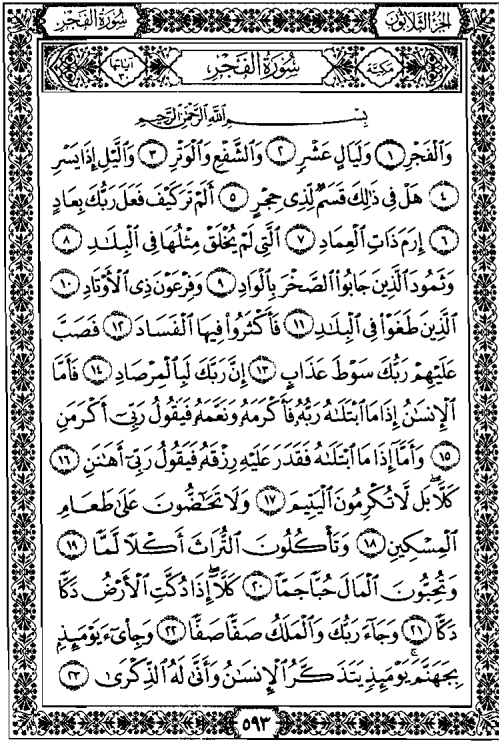 الجُزْءُ الثَّلَاثُونَ سُورَةُ الفَجْرِ
مَكِّيَّة سُورَةُ الْفَجْرِ آيَاتُهَا ٣٠
بِسْمِ ٱللَّهِ ٱلرَّحْمَٰنِ ٱلرَّحِيمِ
وَٱلْفَجْرِ ١ وَلَيَالٍ عَشْرٍ ٢ وَٱلشَّفْعِ وَٱلْوَتْرِ ٣ وَٱلَّيْلِ إِذَا يَسْرِ
٤ هَلْ فِى ذَٰلِكَ قَسَمٌ لِّذِى حِجْرٍ ٥ أَلَمْ تَرَ كَيْفَ فَعَلَ رَبُّكَ بِعَادٍ
٦ إِرَمَ ذَاتِ ٱلْعِمَادِ ٧ ٱلَّتِى لَمْ يُخْلَقْ مِثْلُهَا فِى ٱلْبِلَٰدِ ٨
وَثَمُودَ ٱلَّذِينَ جَابُوا۟ ٱلصَّخْرَ بِٱلْوَادِ ٩ وَفِرْعَوْنَ ذِى ٱلْأَوْتَادِ ١٠
ٱلَّذِينَ طَغَوْا۟ فِى ٱلْبِلَٰدِ ١١ فَأَكْثَرُوا۟ فِيهَا ٱلْفَسَادَ ١٢ فَصَبَّ
عَلَيْهِمْ رَبُّكَ سَوْطَ عَذَابٍ ١٣ إِنَّ رَبَّكَ لَبِٱلْمِرْصَادِ ١٤ فَأَمَّا
ٱلْإِنسَٰنُ إِذَا مَا ٱبْتَلَىٰهُ رَبُّهُۥ فَأَكْرَمَهُۥ وَنَعَّمَهُۥ فَيَقُولُ رَبِّىٓ أَكْرَمَنِ
١٥ وَأَمَّآ إِذَا مَا ٱبْتَلَىٰهُ فَقَدَرَ عَلَيْهِ رِزْقَهُۥ فَيَقُولُ رَبِّىٓ أَهَٰنَنِ ١٦
كَلَّا ۖ بَل لَّا تُكْرِمُونَ ٱلْيَتِيمَ ١٧ وَلَا تَحَٰٓضُّونَ عَلَىٰ طَعَامِ
ٱلْمِسْكِينِ ١٨ وَتَأْكُلُونَ ٱلتُّرَاثَ أَكْلًا لَّمًّا ١٩
وَتُحِبُّونَ ٱلْمَالَ حُبًّا جَمًّا ٢٠ كَلَّآ ۖ إِذَا دُكَّتِ ٱلْأَرْضُ دَكًّا
دَكًّا ٢١ وَجَآءَ رَبُّكَ وَٱلْمَلَكُ صَفًّا صَفًّا ٢٢ وَجِا۟ىٓءَ يَوْمَئِذٍۭ
بِجَهَنَّمَ ۚ يَوْمَئِذٍ يَتَذَكَّرُ ٱلْإِنسَٰنُ وَأَنَّىٰ لَهُ ٱلذِّكْرَىٰ ٢٣
٥٩٣